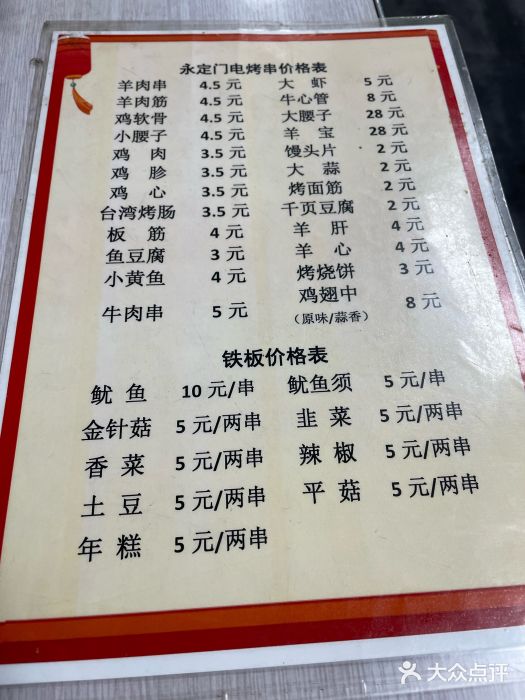 永定门电烤串价格表
羊肉串 4.5 元 大 虾 5 元
羊肉筋 4.5 元 牛心管 8 元
鸡软骨 4.5 元 大腰子 28 元
小腰子 4.5 元 羊 宝 28 元
鸡 肉 3.5 元 馒头片 2 元
鸡 胗 3.5 元 大 蒜 2 元
鸡 心 3.5 元 烤面筋 2 元
台湾烤肠 3.5 元 千页豆腐 2 元
板 筋 4 元 羊 肝 4 元
鱼豆腐 3 元 羊 心 4 元
小黄鱼 4 元 烤烧饼 3 元
牛肉串 5 元 鸡翅中 8 元
(原味/蒜香)
铁板价格表
鱿 鱼 10 元/串 鱿鱼须 5 元/串
金针菇 5 元/两串 韭 菜 5 元/两串
香 菜 5 元/两串 辣 椒 5 元/两串
土 豆 5 元/两串 平 菇 5 元/两串
年 糕 5 元/两串
大众点评